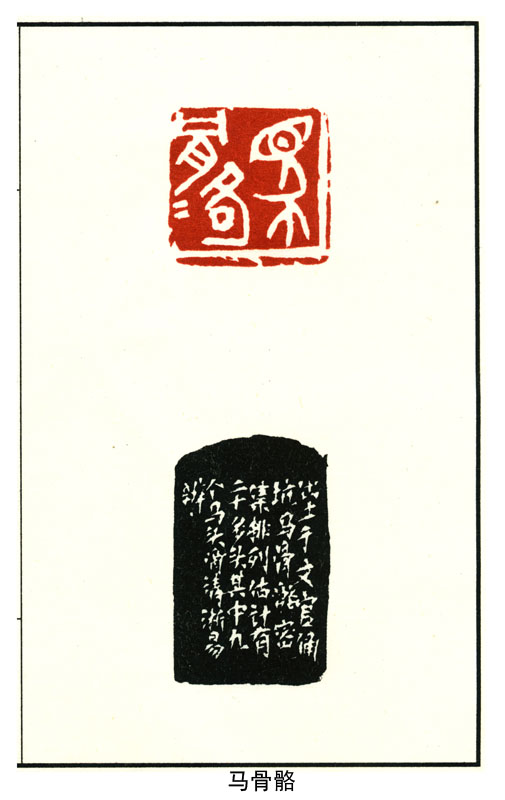 马
骨骼
出土于文官俑
坑马骨骼密
集排列估计有
二十多头其中九
个马头骨清晰易
辨
马骨骼